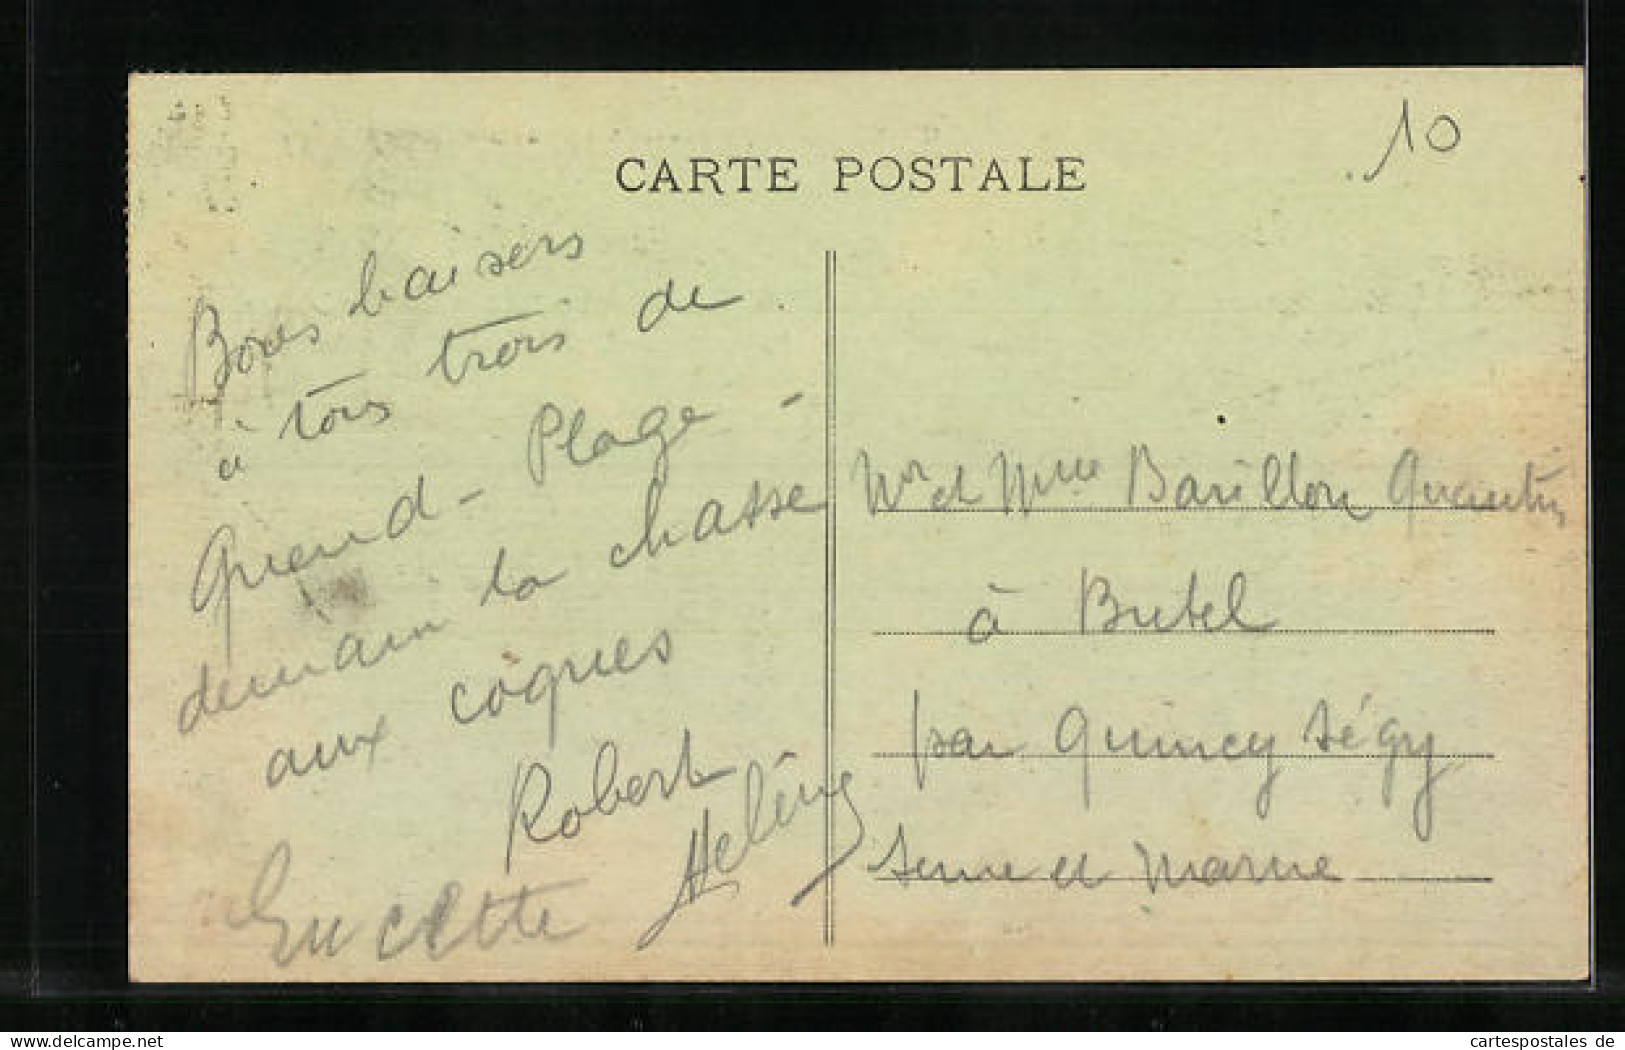 CARTE POSTALE
10
Bons baisers
à tous trois de
Quend-Plage -
demain la chasse
aux coques
Robert
Hélène
Lucette
Mr et Mme Barillon Quentin
à Butel
par Quincy Ségy
Seine et Marne
delcampe.net
cartespostales de